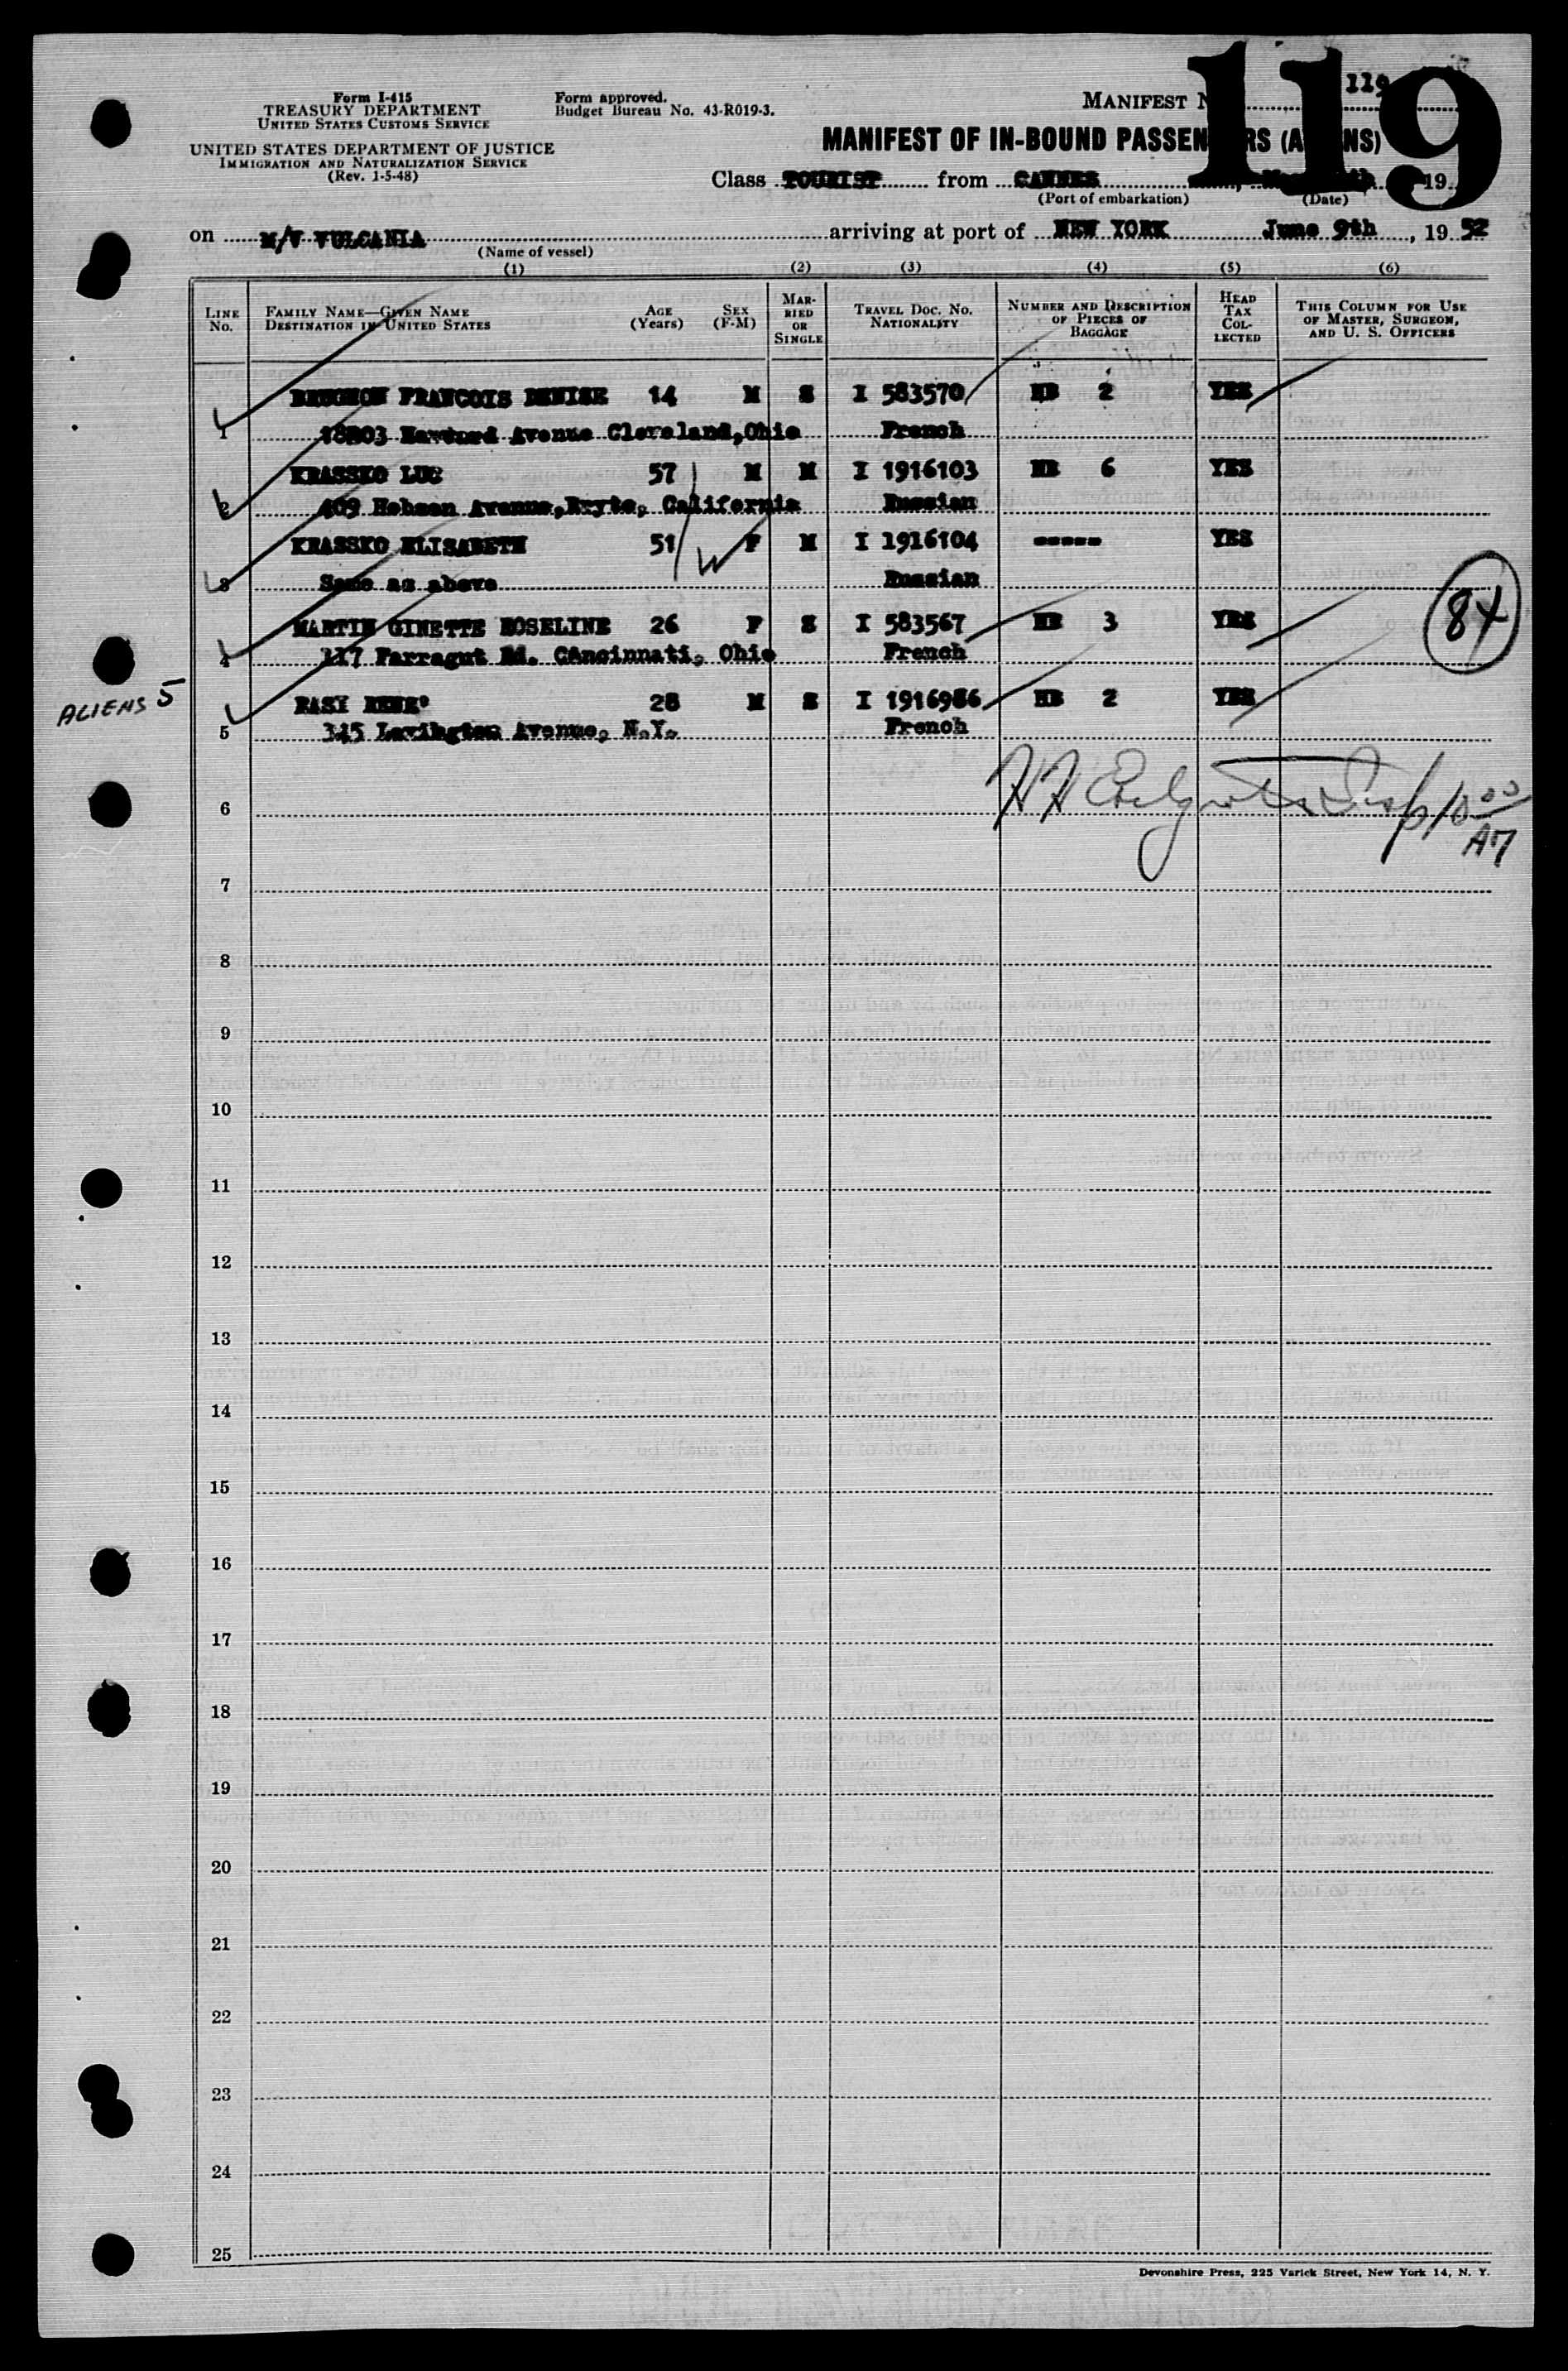 119
119
Form I-415
TREASURY DEPARTMENT
UNITED STATES CUSTOMS SERVICE
UNITED STATES DEPARTMENT OF JUSTICE
IMMIGRATION AND NATURALIZATION SERVICE
(Rev. 1-5-48)
Form approved.
Budget Bureau No. 43-R019-3.
MANIFEST
MANIFEST OF IN-BOUND PASSEN RS (A NS)
Class TOURIST from CANNES 19
(Port of embarkation) (Date)
on M/V VULCANIA arriving at port of NEW YORK June 9th, 19 52
(Name of vessel)
(1) (2) (3) (4) (5) (6)
LINE No. FAMILY NAME—GIVEN NAME DESTINATION IN UNITED STATES AGE (Years) SEX (F-M) MARRIED OR SINGLE TRAVEL DOC. NO. NATIONALITY NUMBER AND DESCRIPTION OF PIECES OF BAGGAGE HEAD TAX COLLECTED THIS COLUMN FOR USE OF MASTER, SURGEON, AND U. S. OFFICERS
FRANCOIS DENISE 14 M S I 583570 HB 2 YES
1 Avenue Cleveland, Ohio French
KRASSKO LUC 57 M M I 1916103 HB 6 YES
2 409 Hobson Avenue, Bryte, California Russian
KRASSKO ELISABETH 51 F M I 1916104 ----- YES
W
3 Same as above Russian
MARTIN GINETTE ROSELINE 26 F S I 583567 HB 3 YES
84
4 117 Farragut Rd. Cincinnati, Ohio French
ALIENS 5
RENE' 28 M S I 1916986 HB 2 YES
5 345 Lexington Avenue, N.Y. French
6
7
8
9
10
11
12
13
14
15
16
17
18
19
20
21
22
23
24
25
Devonshire Press, 225 Varick Street, New York 14, N. Y.